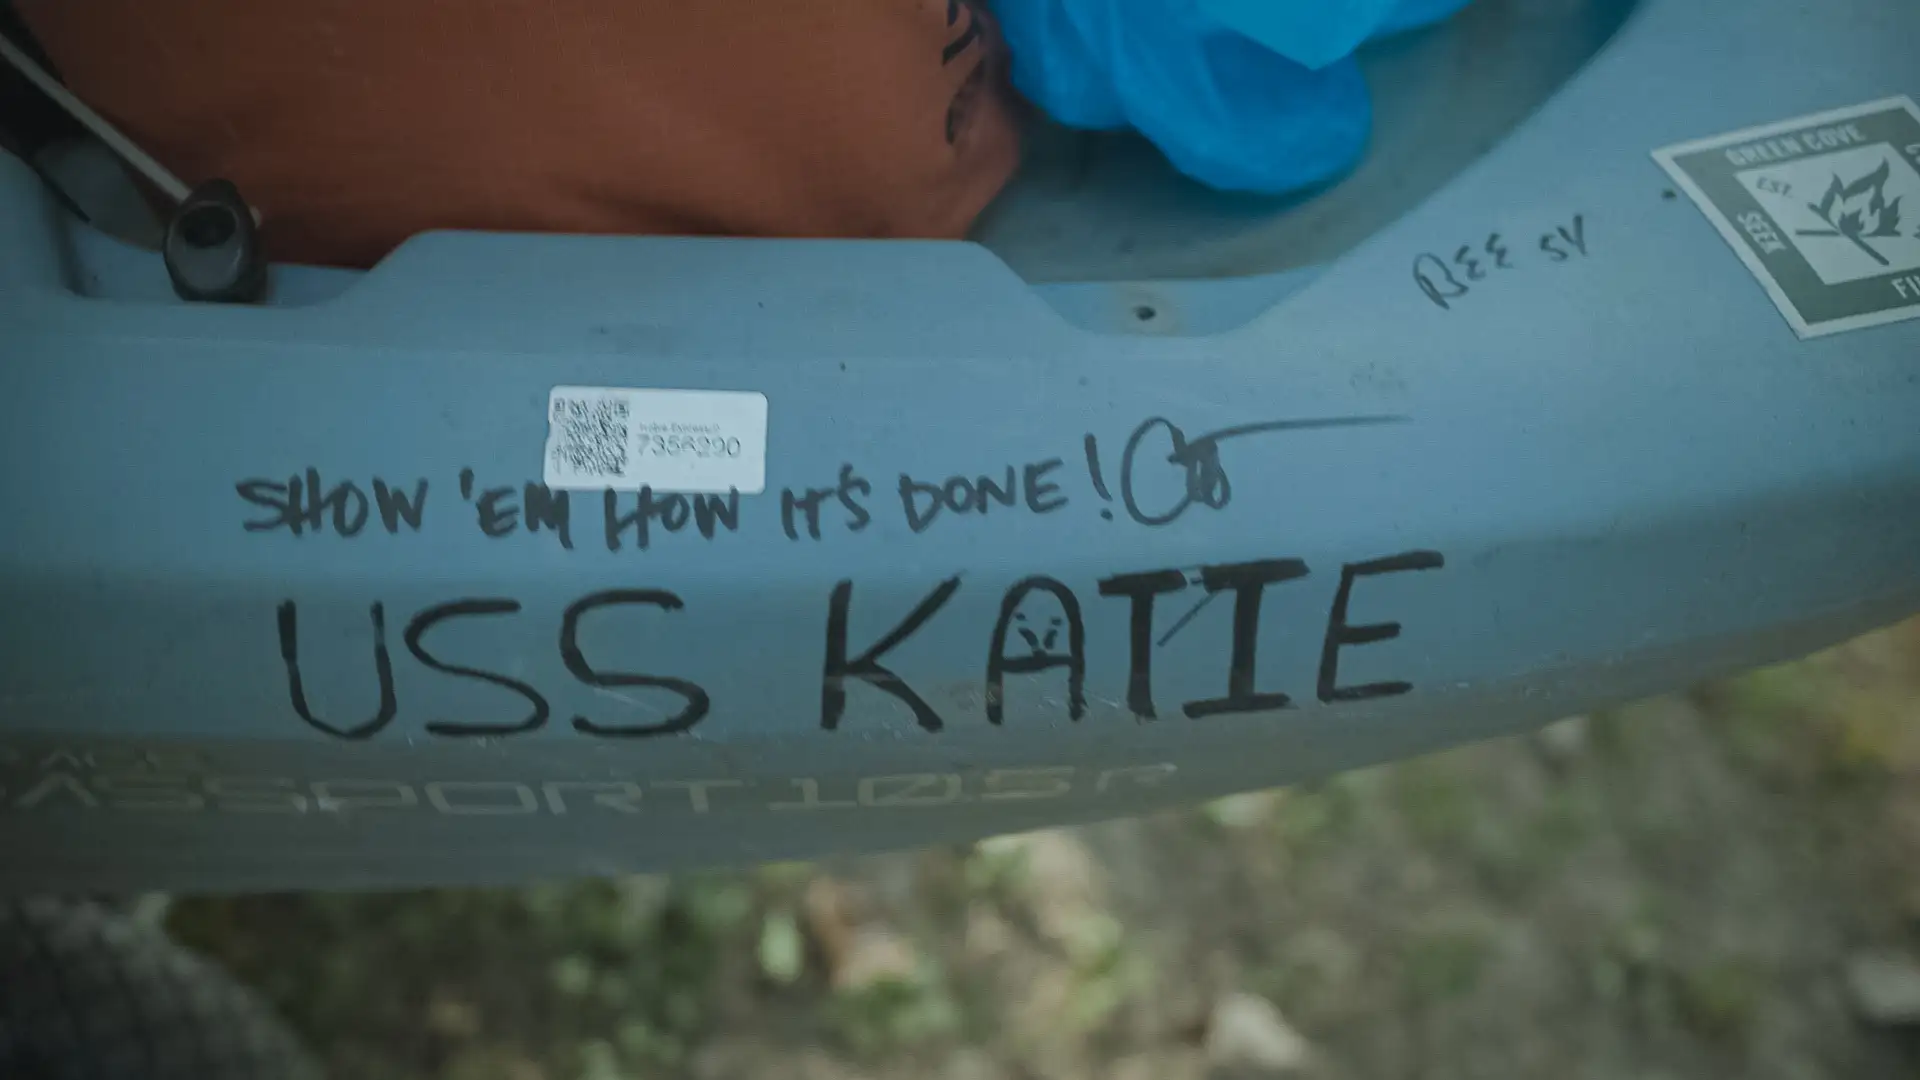 GREEN COVE
EST.
BEE SY
7356290
SHOW 'EM HOW IT'S DONE!
USS KATIE
PASSPORT 10.5 R